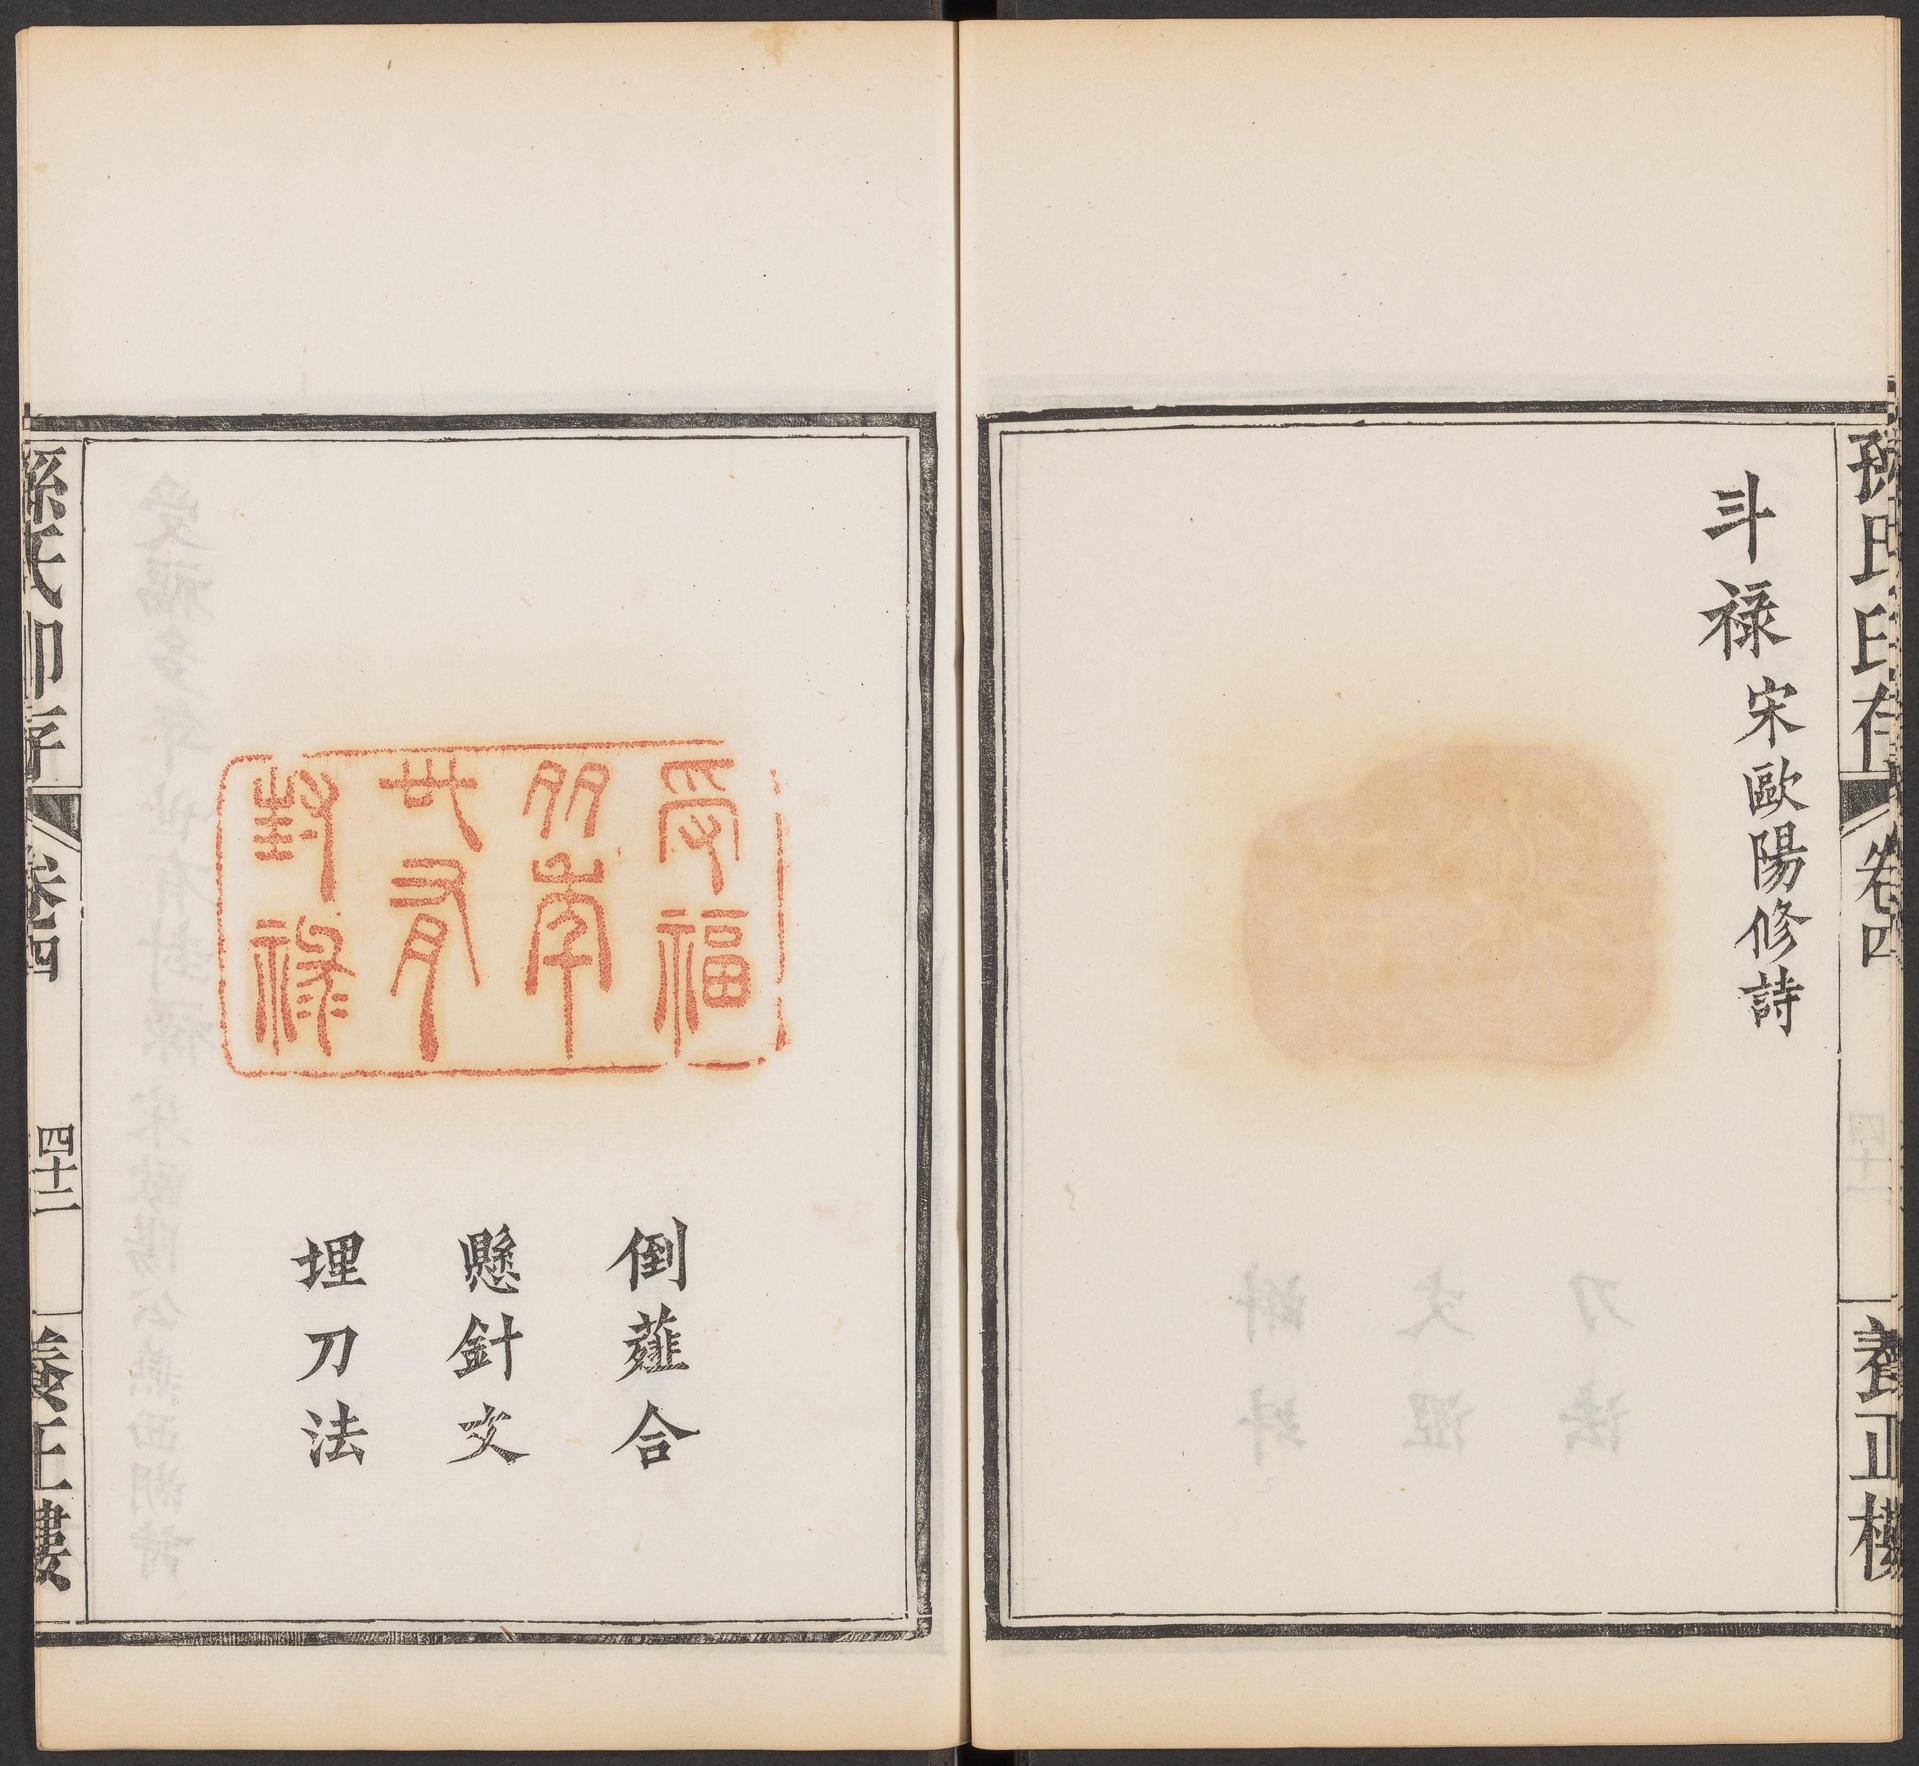 孫氏印存
卷四
養正樓
斗祿宋歐陽修詩
受福
多年
世有
封祿
倒薤合
懸針文
埋刀法
孫氏印存
卷四
四十二
養正樓